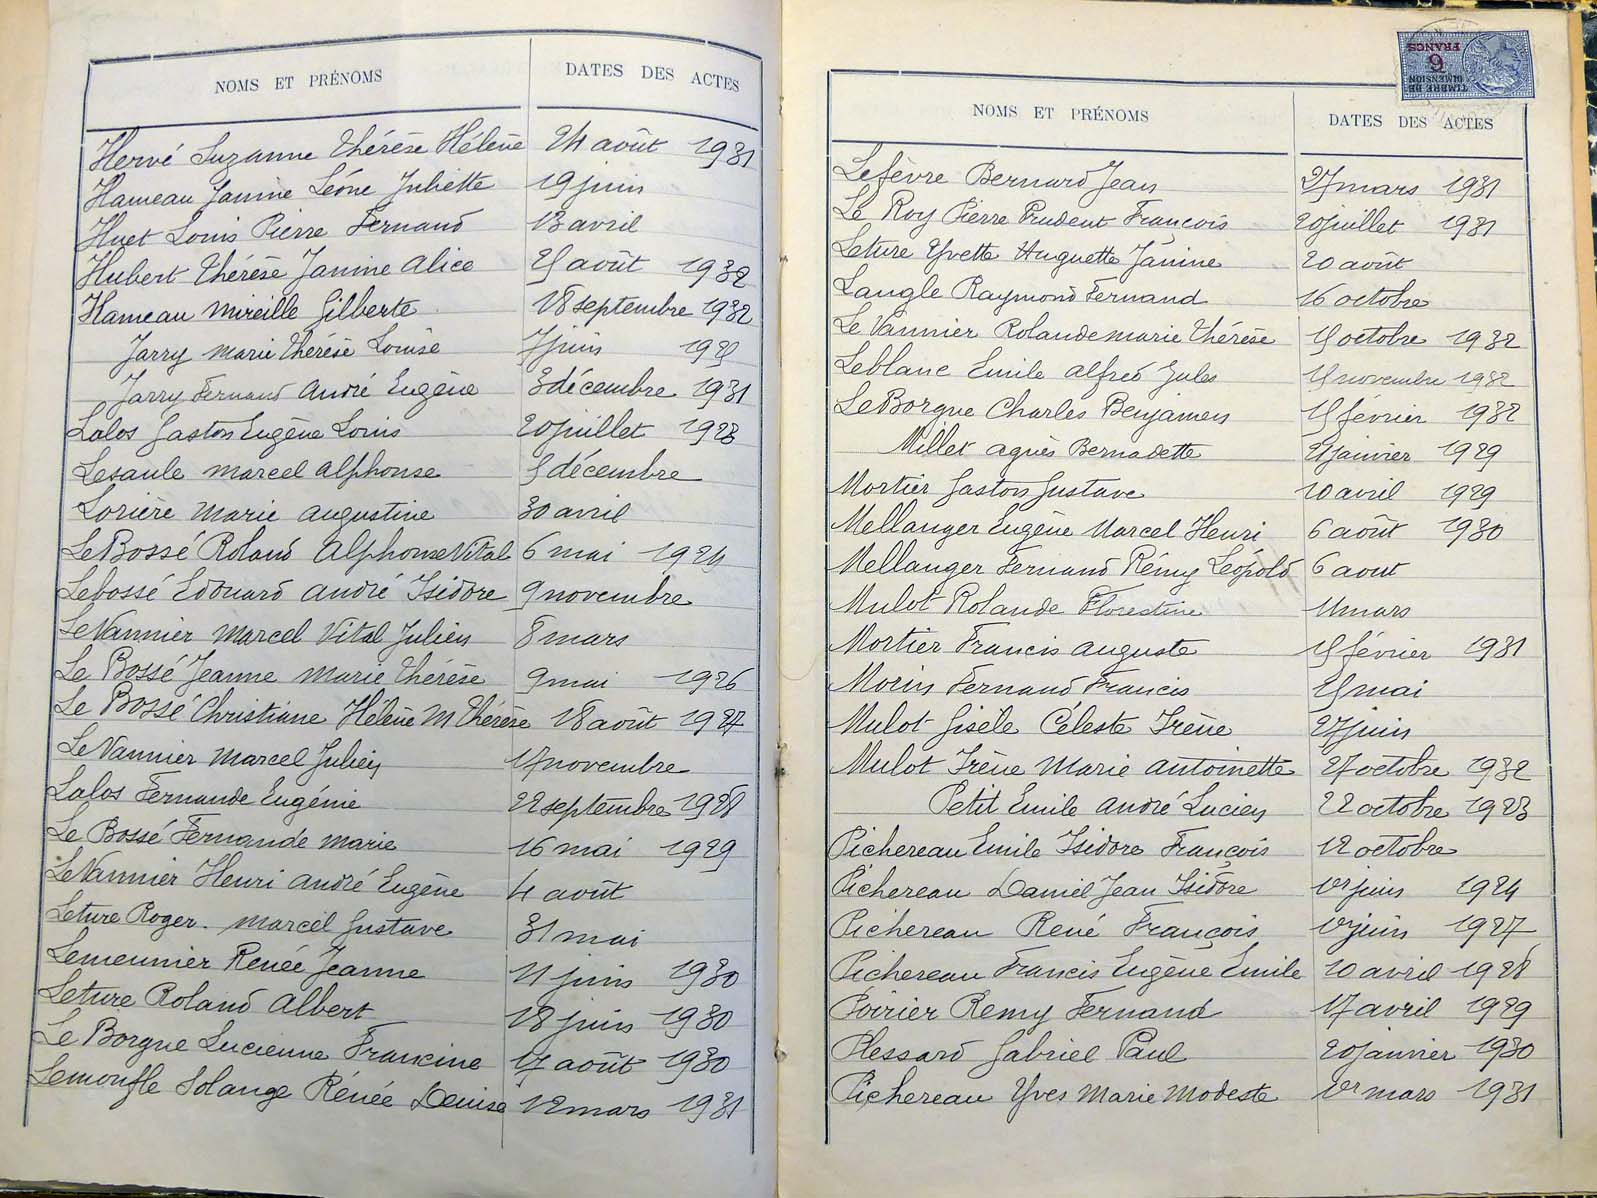 NOMS ET PRÉNOMS DATES DES ACTES
Hervé Suzanne Thérèse Hélène 24 août 1931
Hameau Janine Léone Juliette 19 juin
Huet Louis Pierre Fernand 13 avril
Hubert Thérèse Janine Alice 25 août 1932
Hameau Mireille Gilberte 18 septembre 1932
Jarry Marie Therèse Louise 7 juin 1925
Jarry Fernand André Eugène 3 décembre 1931
Lalos Gaston Eugène Louis 20 juillet 1923
Lesaule Marcel Alphonse 5 décembre
Lorière Marie Augustine 30 avril
Le Bossé Roland Alphonse Vital 6 mai 1924
Lebossé Edouard André Isidore 9 novembre
Le Vannier Marcel Vital Julien 8 mars
Le Bossé Jeanne Marie Thérèse 9 mai 1926
Le Bossé Christiane Hélène M Thérèse 18 août 1927
Le Vannier Marcel Julien 17 novembre
Lalos Fernande Eugénie 22 septembre 1928
Le Bossé Fernande Marie 16 mai 1929
Le Vannier Henri André Eugène 4 août
Leture Roger. Marcel Gustave 31 mai
Lemeunier Renée Jeanne 11 juin 1930
Leture Roland Albert 18 juin 1930
Le Borgne Lucienne Francine 17 août 1930
Lemoufle Solange Rénée Denise 12 mars 1931
TIMBRE DE DIMENSION
6
FRANCS
NOMS ET PRÉNOMS DATES DES ACTES
Lefèvre Bernard Jean 27 mars 1931
Le Roy Pierre Prudent François 20 juillet 1931
Leture Yvette Huguette Janine 20 août
Langle Raymond Fernand 16 octobre
Le Vannier Rolande Marie Thérèse 15 octobre 1932
Leblanc Emile Alfred Jules 15 novembre 1932
Le Borgne Charles Benjamin 15 février 1932
Millet Agnès Bernadette 21 janvier 1929
Mortier Gaston Gustave 10 avril 1929
Mellanger Eugène Marcel Henri 6 août 1930
Mellanger Fernand Rémy Léopold 6 aout
Mulot Rolande Florestine 11 mars
Mortier Francis Auguste 15 février 1931
Morin Fernand Francis 25 mai
Mulot Gisèle Céleste Irène 27 juin
Mulot Irène Marie Antoinette 27 octobre 1932
Petit Emile André Lucien 22 octobre 1923
Pichereau Emile Isidore François 12 octobre
Pichereau Daniel Jean Isidore 1er juin 1924
Pichereau René François 1er juin 1927
Pichereau Francis Eugène Emile 10 avril 1928
Poirier Remy Fernand 17 avril 1929
Plessard Gabriel Paul 20 janvier 1930
Pichereau Yves Marie Modeste 1er mars 1931